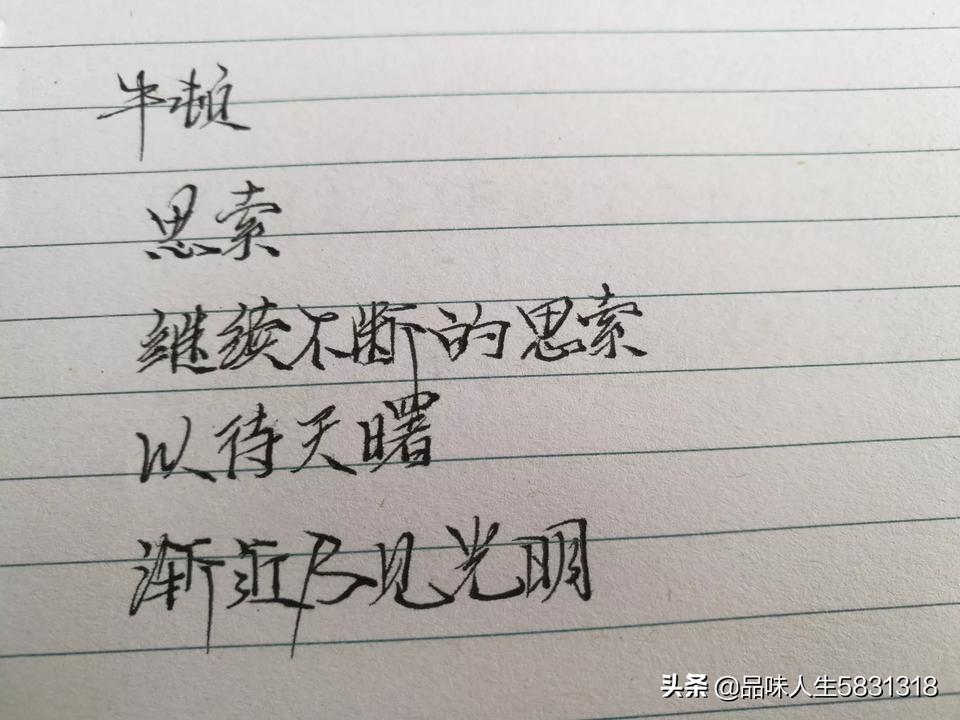 牛顿
思索
继续不断的思索
以待天曙
渐近乃见光明
头条 @品味人生5831318